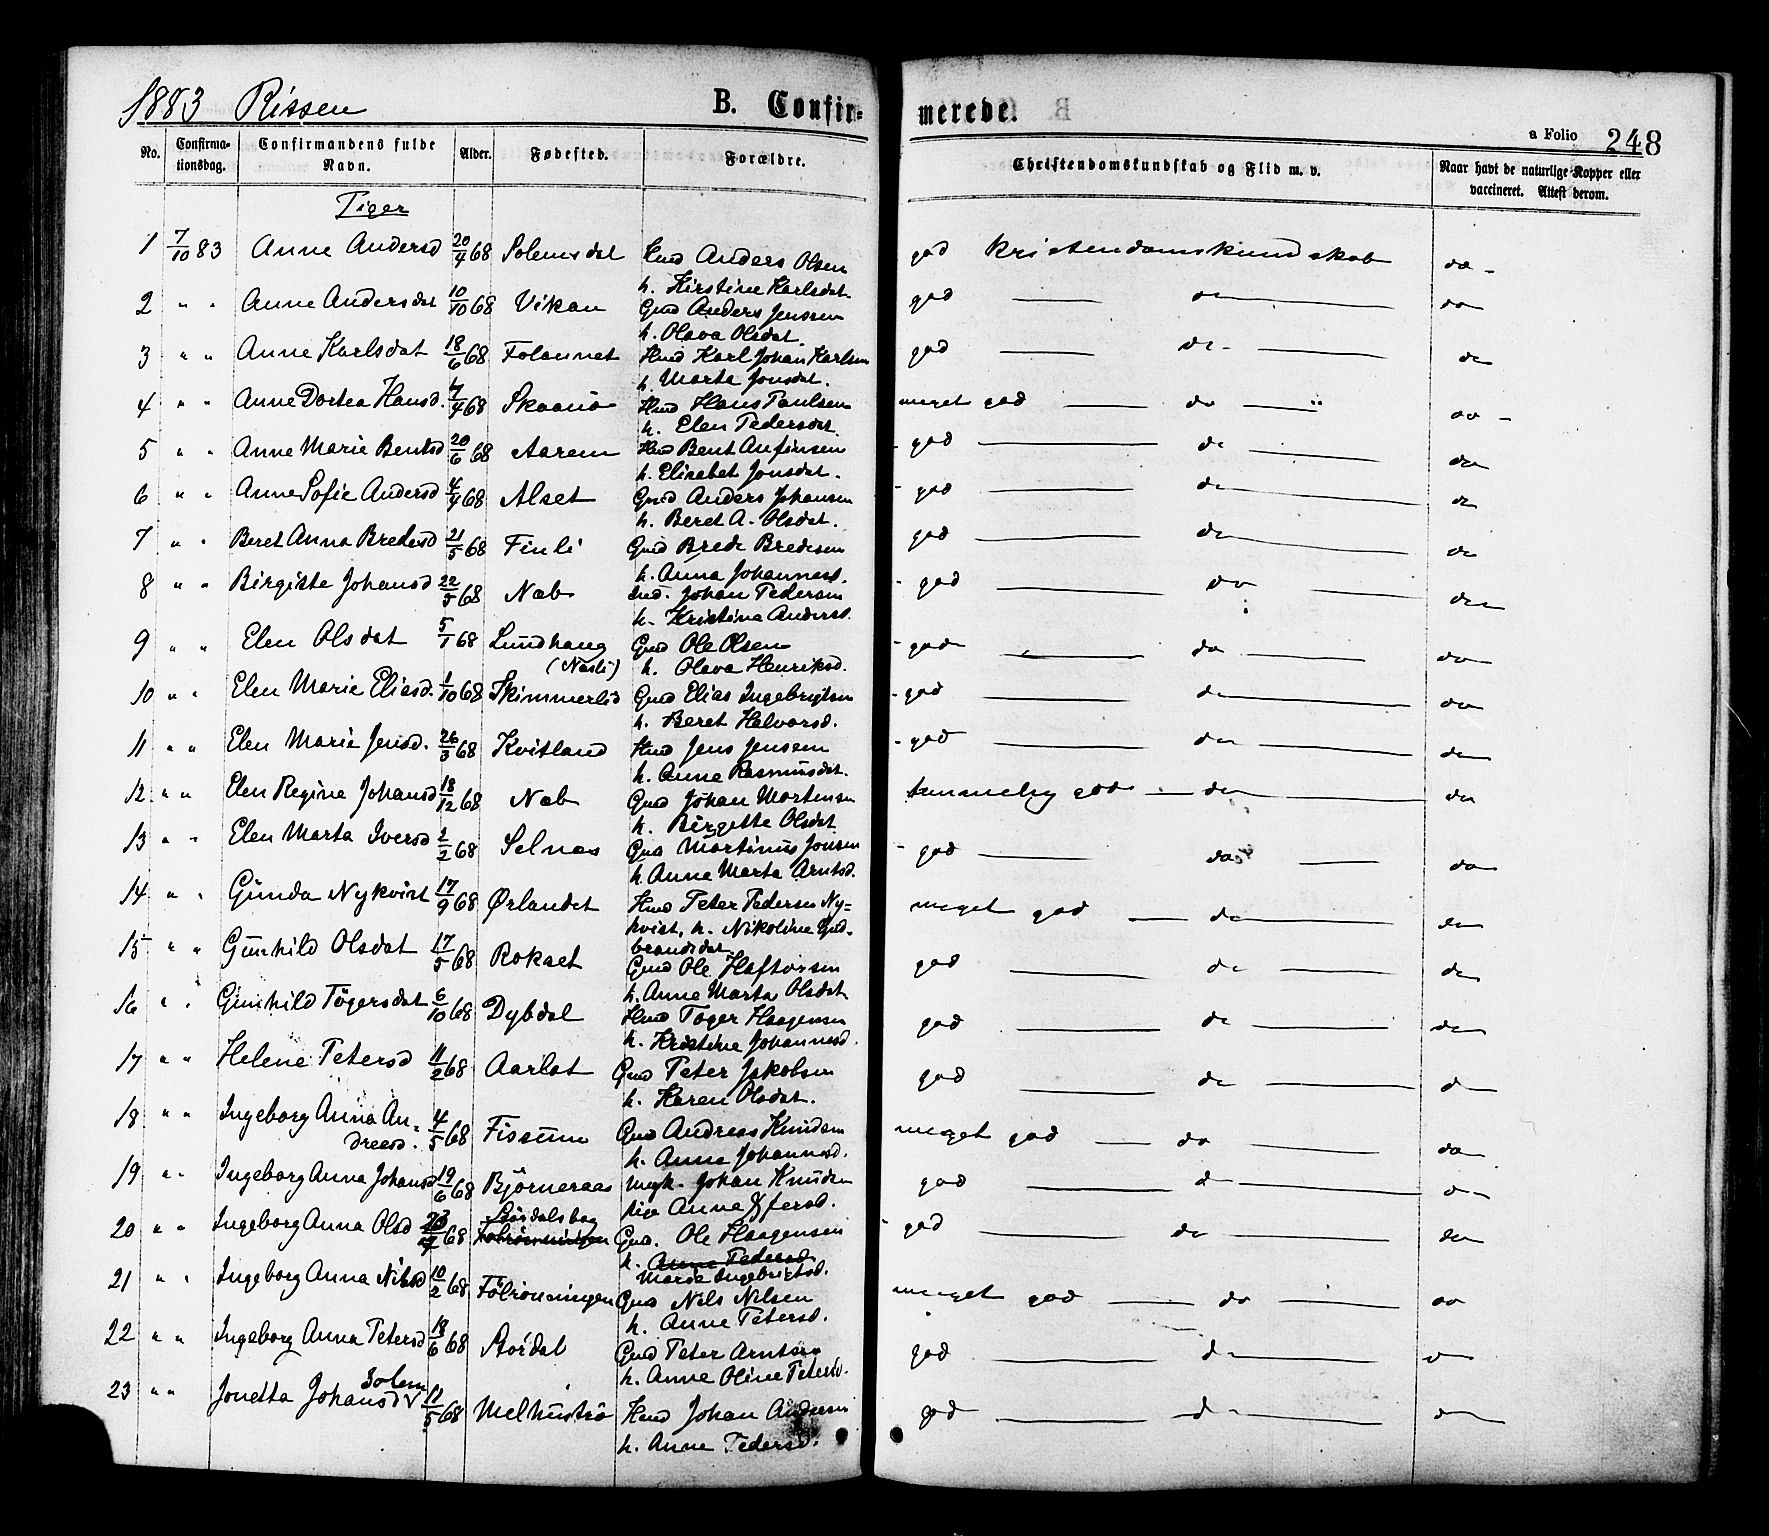 1883 Rissen B. Confir- merede. B
a Folio 248
No. Confirma-tionsdag. Confirmandens fulde Navn. Alder. Fødested. Forældre. Christendomskundskab og Flid m. v. Naar havt de naturlige Kopper eller vaccineret. Attest derom.
Piger
1 7/10 83 Anne Andersd 20/4 68 Solemsdal Hmd Anders Olsen god Kristendomskundskab do -
h. Kirstine Karlsdat.
2 " " Anne Andersdat 10/10 68 Vikan Gmd Anders Jenssen god do do
h. Olava Olsdat.
3 " " Anne Karlsdat 18/6 68 Folannet Hmd Karl Johan Karlsen god do - do
h. Marta Jonsdat.
4 " " Anne Dortea Hansd. 7/4 68 Skaanø Hmd Hans Paulsen meget god do do -
h. Elen Pedersdat.
5 " " Anne Marie Bentsd 20/6 68 Aarem Hmd Bent Anfinsen - god do do
h. Elisabet Jonsdat.
6 " " Anne Sofie Andersd 4/4 68 Alset Gmd Anders Johansen - god do do
h. Beret A. Olsdat.
7 " " Beret Anna Bredesd 21/5 68 Finli Gmd Brede Bredesen god do do
h. Anna Johannesd.
8 " " Birgitte Johansd 22/5 68 Næb Ind. Johan Pedersen - god do do
h. Kristina Andersd.
9 " " Elen Olsdat 5/1 68 Lundhaug Gmd Ole Olsen - god do do
(Næsli) h. Olava Henriksd.
10 " " Elen Marie Eliasd. 1/10 68 Skimmerlid Gmd Elias Ingebrigtsen - god do do
h. Beret Halvorsd.
11 " " Elen Marie Jensd. 26/3 68 Kvitland Hmd Jens Jensen - god do do
h. Anne Rasmusdat.
12 " " Elen Regine Johansd 18/12 68 Næb Gmd Johan Mortensen temmelig god do do
h. Birgitte Olsdat
13 " " Elen Marta Iversd 2/2 68 Selnæs Gmd Martinus Jonsen - god do do
h. Anne Marta Arntsd.
14 " " Gunda Nykvist 17/9 68 Ørlandet Hmd Peter Pedersen Ny= meget god do do
kvist, h. Nikoline Gud-
brandsdat
15 " " Gunhild Olsdat 17/5 68 Rokset Gmd Ole Haftorsen god do do
h. Anne Marta Olsdat
16 " " Gunhild Tøgersdat 6/10 68 Dybdal Hmd Tøger Haagensen god do do
h. Kristine Johannesd.
17 " " Helene Petersd 11/2 68 Aarlot Gmd Peter Jakobsen god do do
h. Karen Olsdat.
18 " " Ingeborg Anna An- 4/5 68 Fissum Gmd Andreas Knudsen meget god do do
dreasd. h. Anne Johannesd.
19 " " Ingeborg Anna Johansd 19/6 68 Bjørneraas Ungk. Johan Knudsen god do do
Pige Anne
20 " " Ingeborg Anna Olsd 23 68 Størdalsbag Følrønningen Gmd. Ole Haagensen - god do do
h. Anne Pedersd
Marie Ingebrigtsd.
21 " " Ingeborg Anna Nilsd 10/2 68 Følrønningen Gmd Nils Nilsen meget god do do
h. Anne Petersd.
22 " " Ingeborg Anna Petersd 18/6 68 Størdal Gmd Peter Arntsen god do do
h. Anne Oline Petersd.
Solem
23 " " Jonetta Johansd V 11/5 68 Melhustrø Hmd Johan Andersen god do do
h. Anne Pedersd.